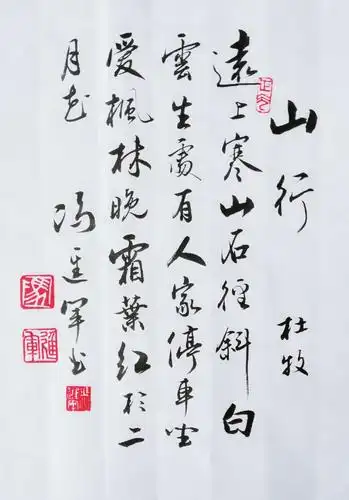 山行
杜牧
遠上寒山石徑斜白
雲生處有人家停車坐
愛楓林晚霜葉紅於二
月花
冯 軍书